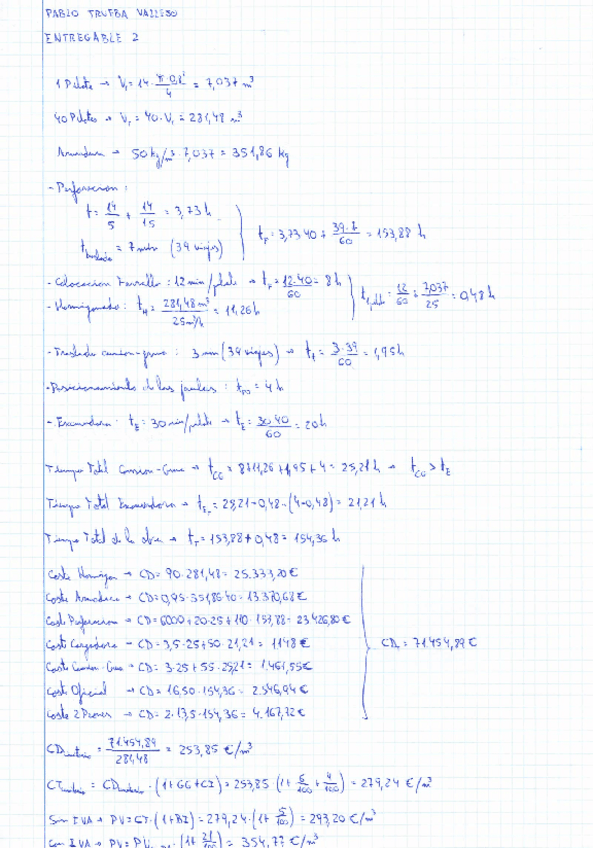 PABLO TRUEBA VALLEJO
ENTREGABLE 2
1 Pilote → V₁ = 14 · π·0,8²/4 = 7,037 m³
40 Pilotes → V_T = 40 · V₁ = 281,48 m³
Armadura → 50 kg/m³ · 7,037 = 351,86 kg
- Perforacion :
t = 14/5 + 14/15 = 3,73 h
t traslado = 7 min (39 viajes)
t_P = 3,73·40 + 39·7/60 = 153,88 h
- Colocacion Ferralla : 12 min/pilote → t_F = 12·40/60 = 8 h
- Hormigonado : t_H = 281,48 m³/25 m³/h = 11,26 h
t 1 pilote = 12/60 + 7,037/25 = 0,48 h
- Traslado camion-grua : 3 min (39 viajes) → t_T = 3·39/60 = 1,95 h
- Posicionamiento de las jaulas : t_PO = 4 h
- Excavadora : t_E = 30 min/pilote → t_E = 30·40/60 = 20 h
Tiempo Total Camion-Grua → t_CG = 8+11,26+1,95+4 = 25,21 h → t_CG > t_E
Tiempo Total Excavadora → t_ET = 25,21-0,48-(4-0,48) = 21,21 h
Tiempo Total de la obra → t_T = 153,88 + 0,48 = 154,36 h
Coste Hormigon → CD = 90 · 281,48 = 25.333,20 €
Coste Armadura → CD = 0,95 · 351,86·40 = 13.370,68 €
Coste Perforacion → CD = 6000 + 20·25 + 110 · 153,88 = 23426,80 €
Coste Cargadora → CD = 3,5·25 + 50 · 21,21 = 1148 €
Coste Camion-Grua → CD = 3·25 + 55 · 25,21 = 1.461,55 €
Coste Oficial → CD = 16,50 · 154,36 = 2.546,94 €
Coste 2 Peones → CD = 2 · 13,5 · 154,36 = 4.167,72 €
CD_T = 71454,89 €
CD unitario = 71454,89/281,48 = 253,85 €/m³
CT unitario = CD unitario · (1+GG+CI) = 253,85 (1 + 6/100 + 4/100) = 279,24 €/m³
Sin IVA → PV = CT · (1+BI) = 279,24 · (1 + 5/100) = 293,20 €/m³
Con IVA → PV = PV · (1 + 21/100) = 354,77 €/m³